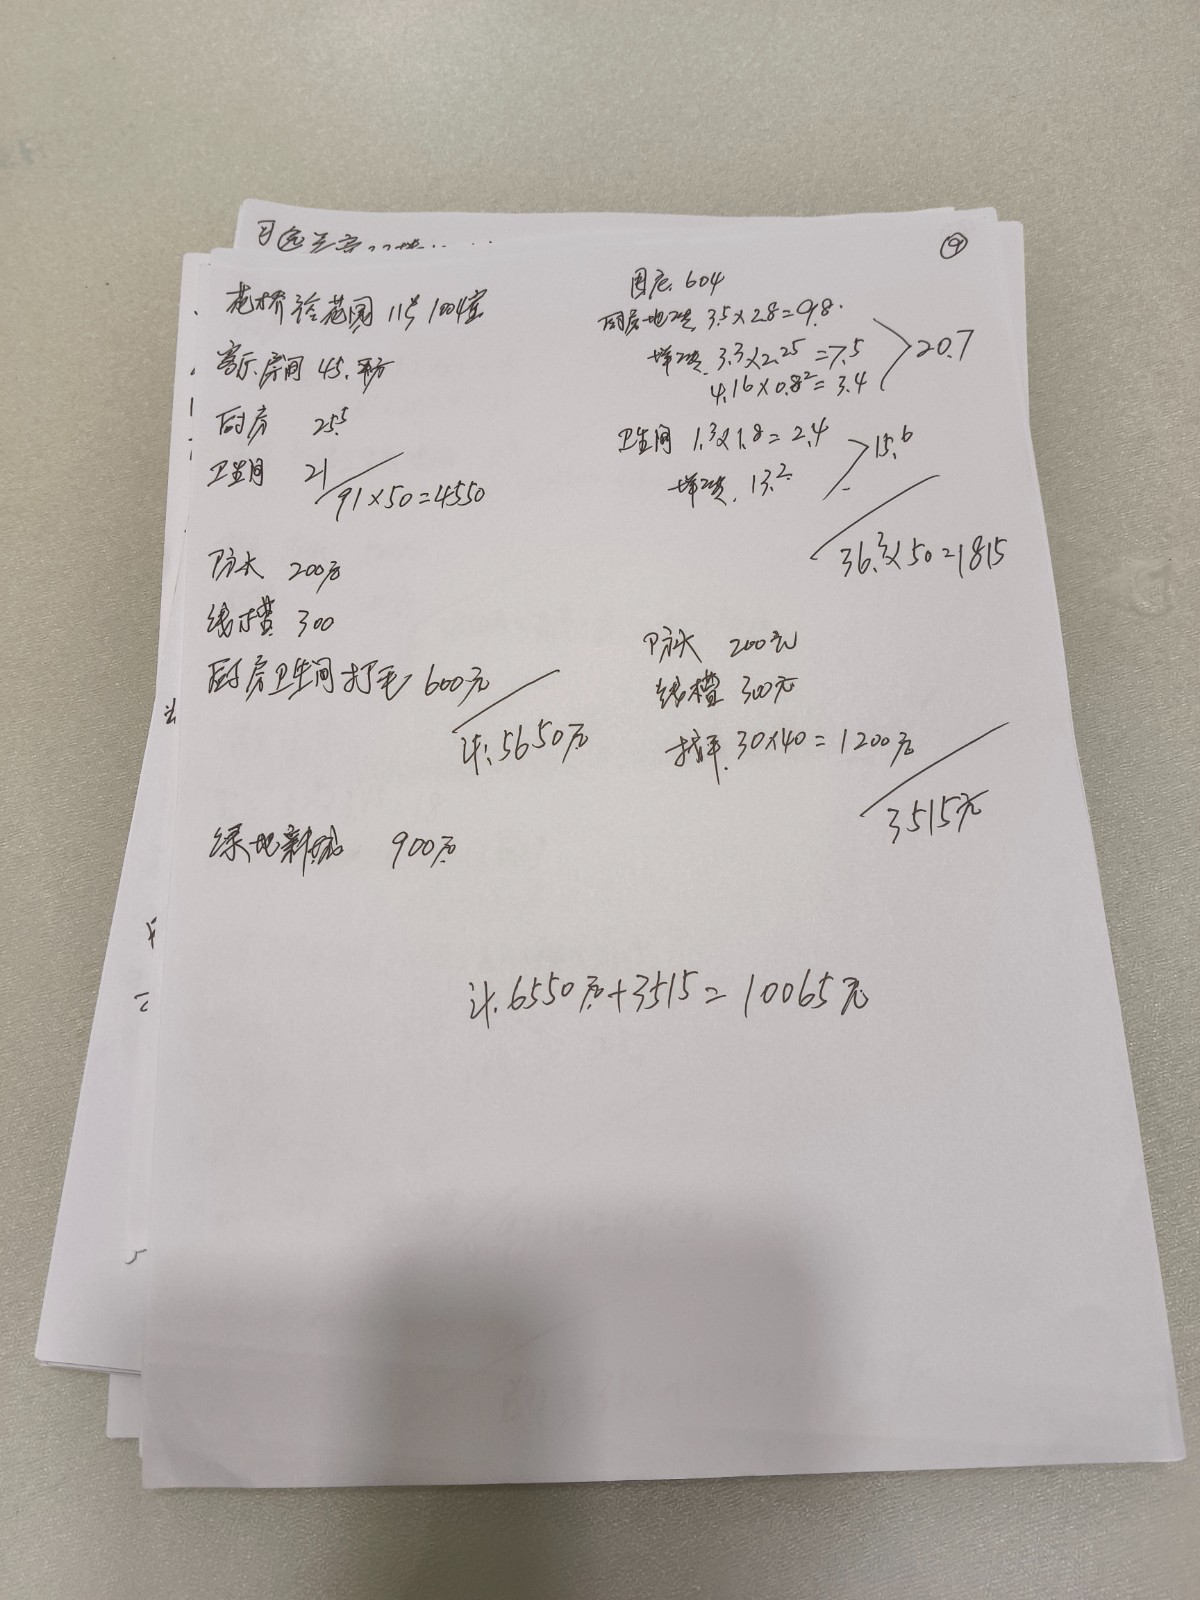 ⑨
花桥 花园 11号 1004室
客厅.房间 45.平方
厨房 25.5
卫生间 21
91×50=4550
防水 200元
线槽 300
厨房卫生间打毛 600元
计.5650元
绿地新城 900元
604
厨房地砖 3.5×2.8=9.8.
墙砖. 3.3×2.25=7.5
4.16×0.82=3.4
20.7
卫生间 1.3×1.8=2.4
墙砖. 13.2
15.6
36.3×50=1815
防水 200元
线槽 300元
找平. 30×40=1200元
3515元
计.6550元+3515=10065元